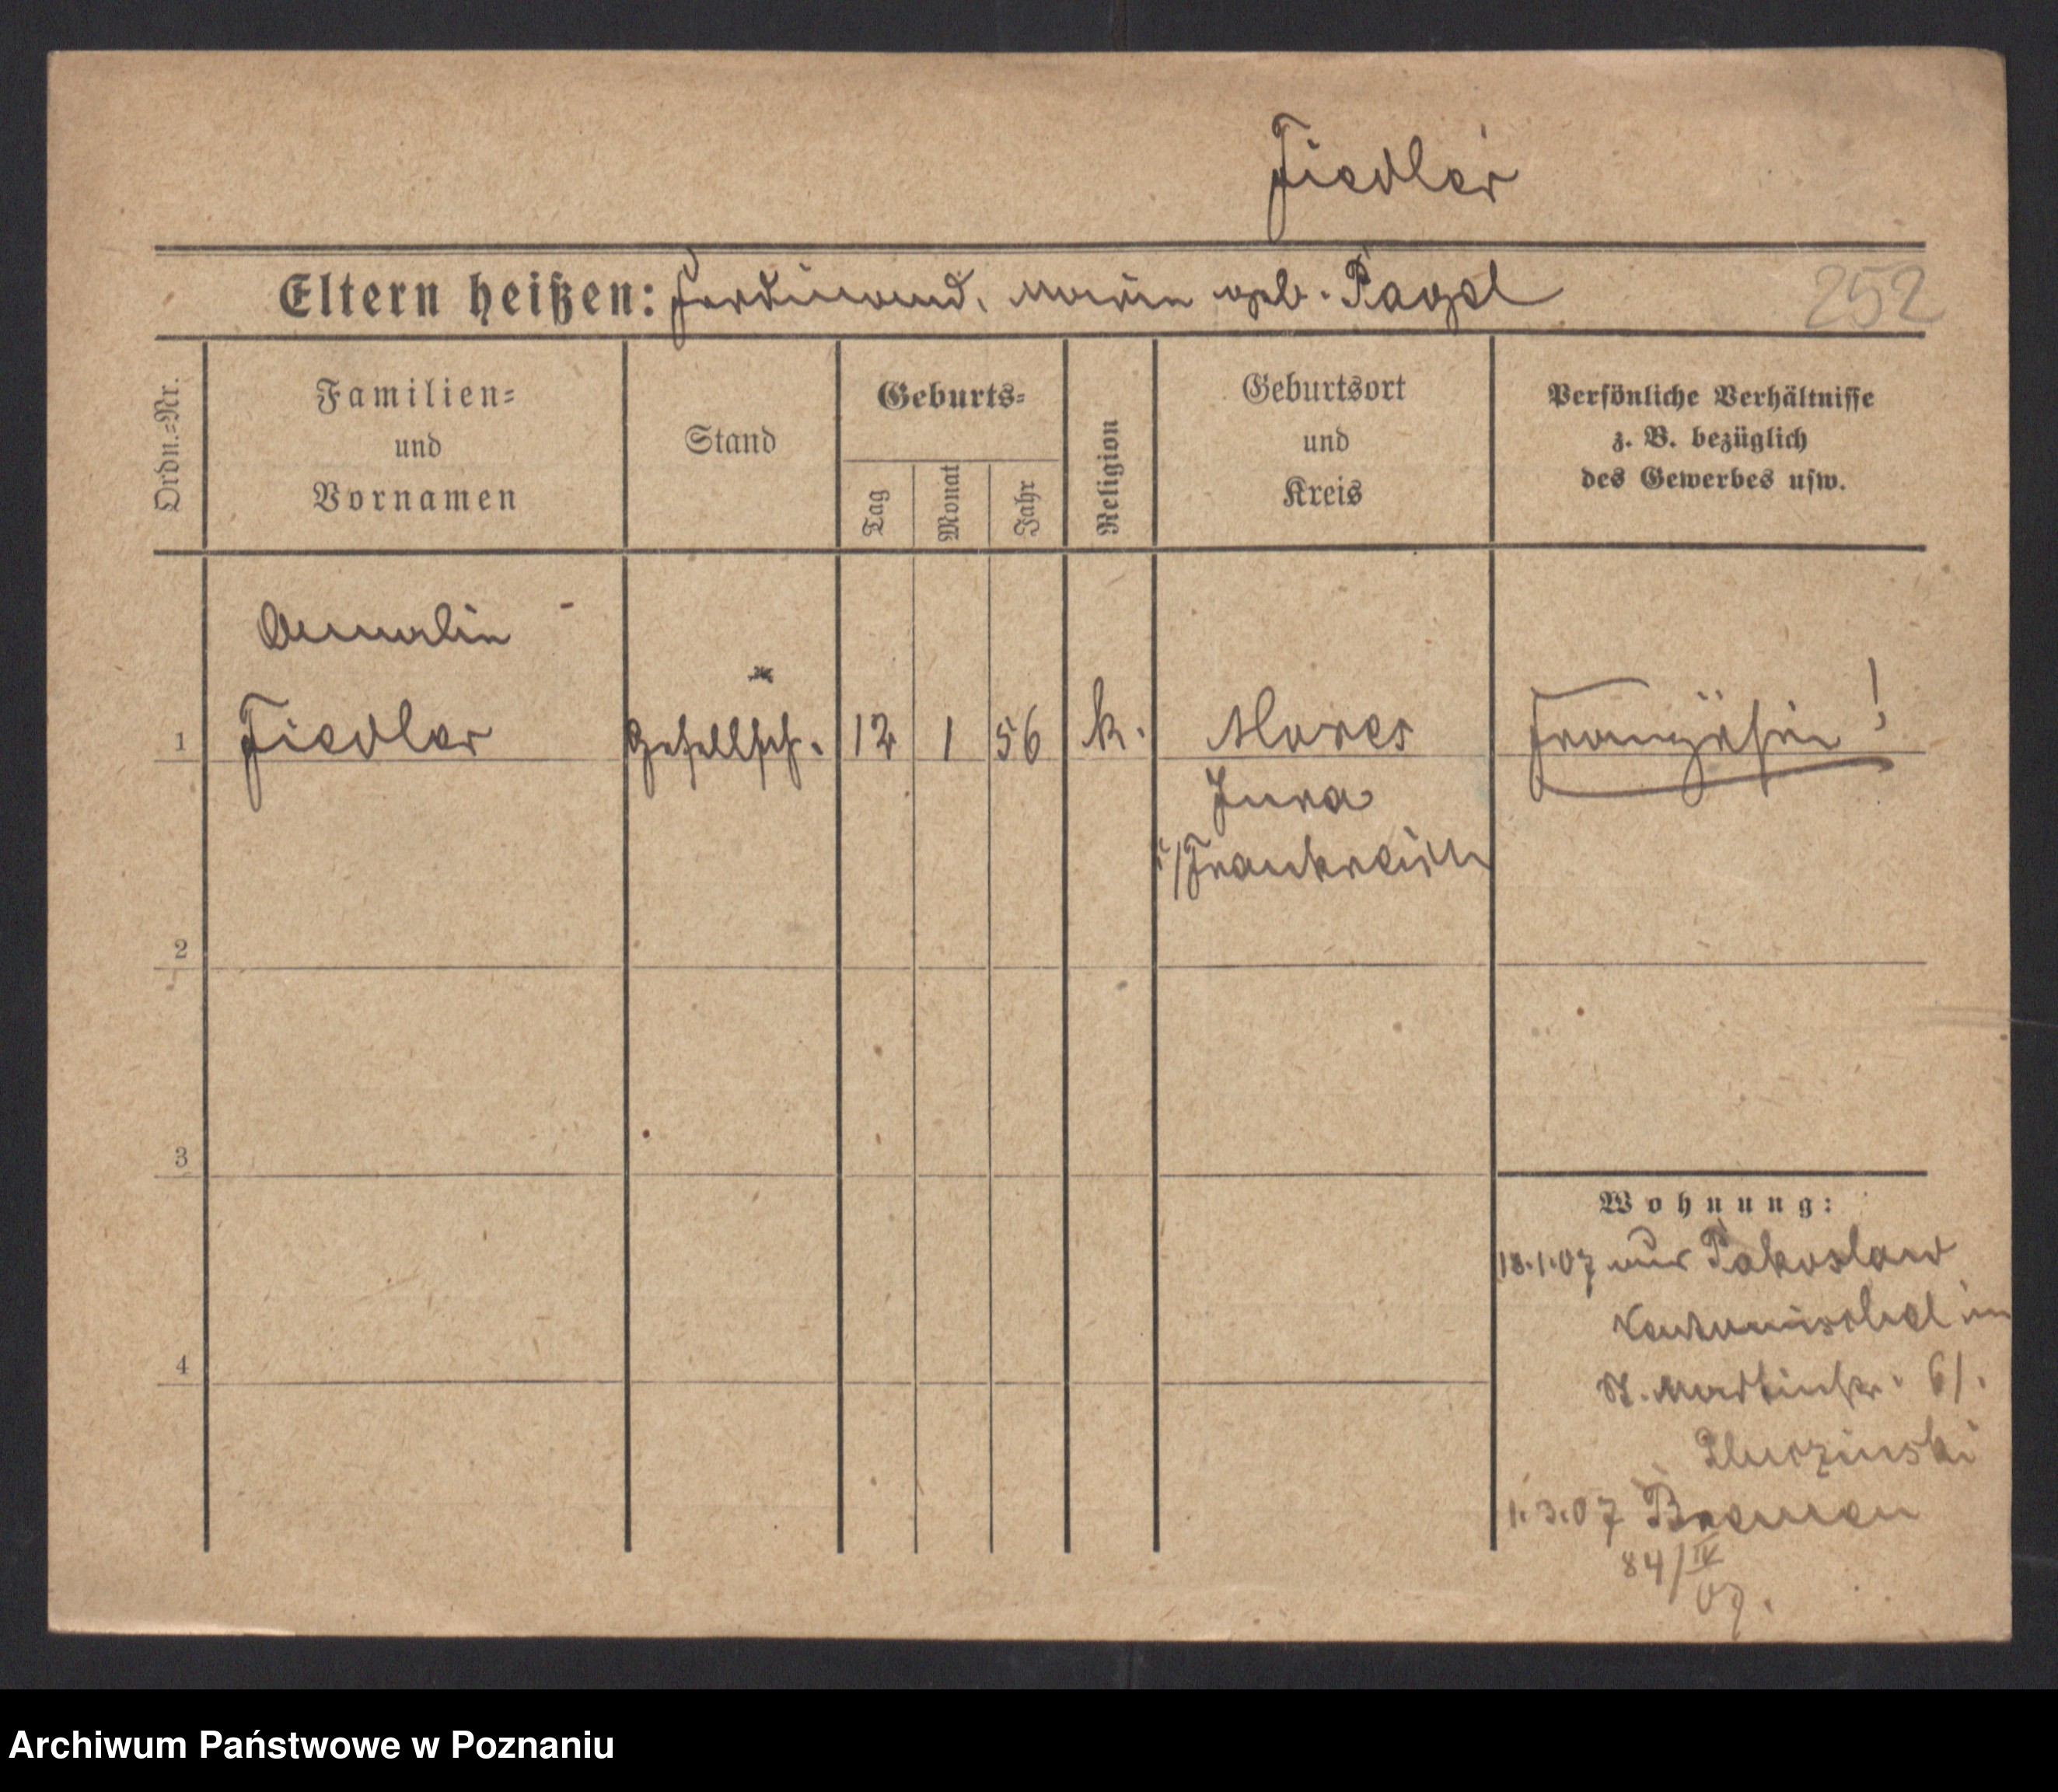 Fiedler
Eltern heißen: Ferdinand, Marie geb. Pagel
252
Ordn.=Nr.
Familien=
und
Vornamen
Stand
Geburts=
Tag
Monat
Jahr
Religion
Geburtsort
und
Kreis
Persönliche Verhältnisse
z. B. bezüglich
des Gewerbes usw.
1
Fiedler
Gesellsch.
12
1
56
k.
Mores
Französin!
Jura
i/Frankreich
2
3
4
Wohnung:
18.1.07 aus Pakoslaw
St. Martinstr. 61.
1.3.07 Bremen
84/IV
07.
Archiwum Państwowe w Poznaniu